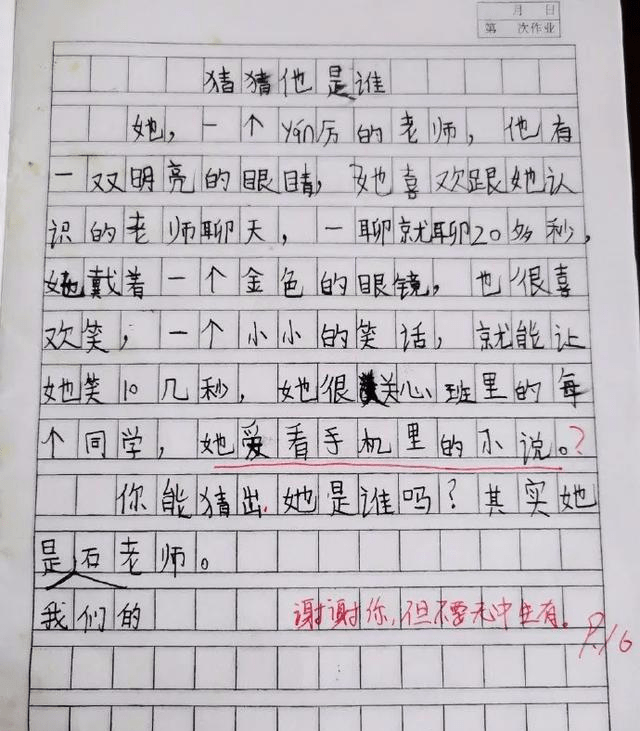 月 日
第 次作业
猜猜他是谁
她，一个yán厉的老师，他有
一双明亮的眼睛，她喜欢跟她认
识的老师聊天，一聊就聊20多秒，
她戴着一个金色的眼镜，也很喜
欢笑，一个小小的笑话，就能让
她笑10几秒，她很关心班里的每
个同学，她爱看手机里的小说。?
你能猜出她是谁吗？其实她
是石老师。
我们的
谢谢你，但不要无中生有。